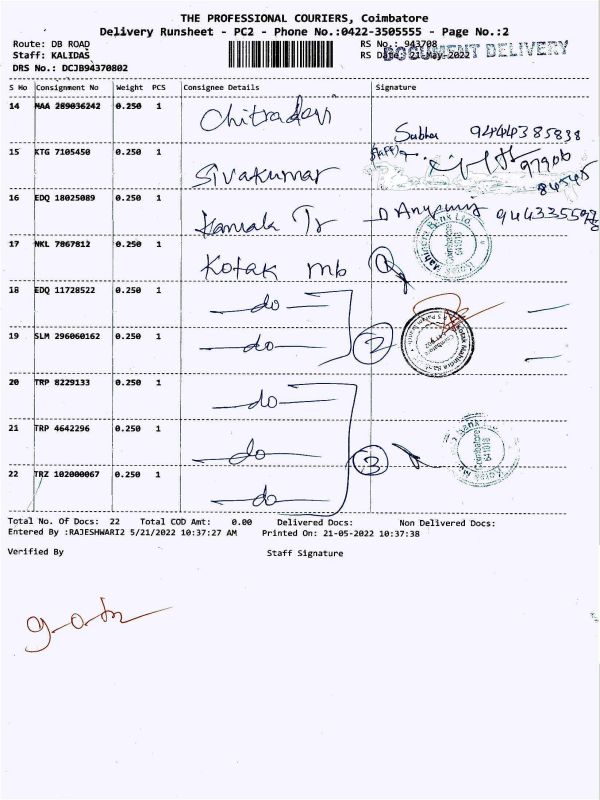 THE PROFESSIONAL COURIERS, Coimbatore
Delivery Runsheet - PC2 - Phone No.:0422-3505555 - Page No.:2
Route: DB ROAD
RS No.: 943708
Staff: KALIDAS
RS Date: 21-May-2022
DOCUMENT DELIVERY
DRS No.: DCJB94370802
S No Consignment No Weight PCS Consignee Details Signature
14 MAA 289036242 0.250 1 Chitradevi
Subha 9444385838
15 KTG 7105450 0.250 1 Sivakumar
97906
84545
16 EDQ 18025089 0.250 1 Kamala Tr
17 NKL 7867812 0.250 1 Kotak mb
18 EDQ 11728522 0.250 1 do
19 SLM 296060162 0.250 1 do 2
20 TRP 8229133 0.250 1 do
21 TRP 4642296 0.250 1 do 3
22 TRZ 102000067 0.250 1 do
Coimbatore
641018
Total No. Of Docs: 22 Total COD Amt: 0.00 Delivered Docs: Non Delivered Docs:
Entered By :RAJESHWARI2 5/21/2022 10:37:27 AM Printed On: 21-05-2022 10:37:38
Verified By Staff Signature